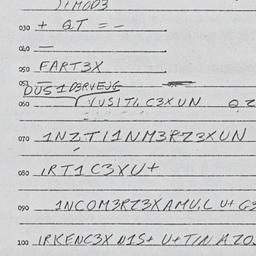 030 + QT = -
040 —
050 FART3X
051
DUS1D3RVEJG
060 VUSITI, C3XUN
070 1NZ,TI1NM3RZ3XUN
080 IRT1C3XU+
090 1NCOM3RZ3XAMU,C U+ G3
100 IRKENC3X N1S+ U+T/N AZO